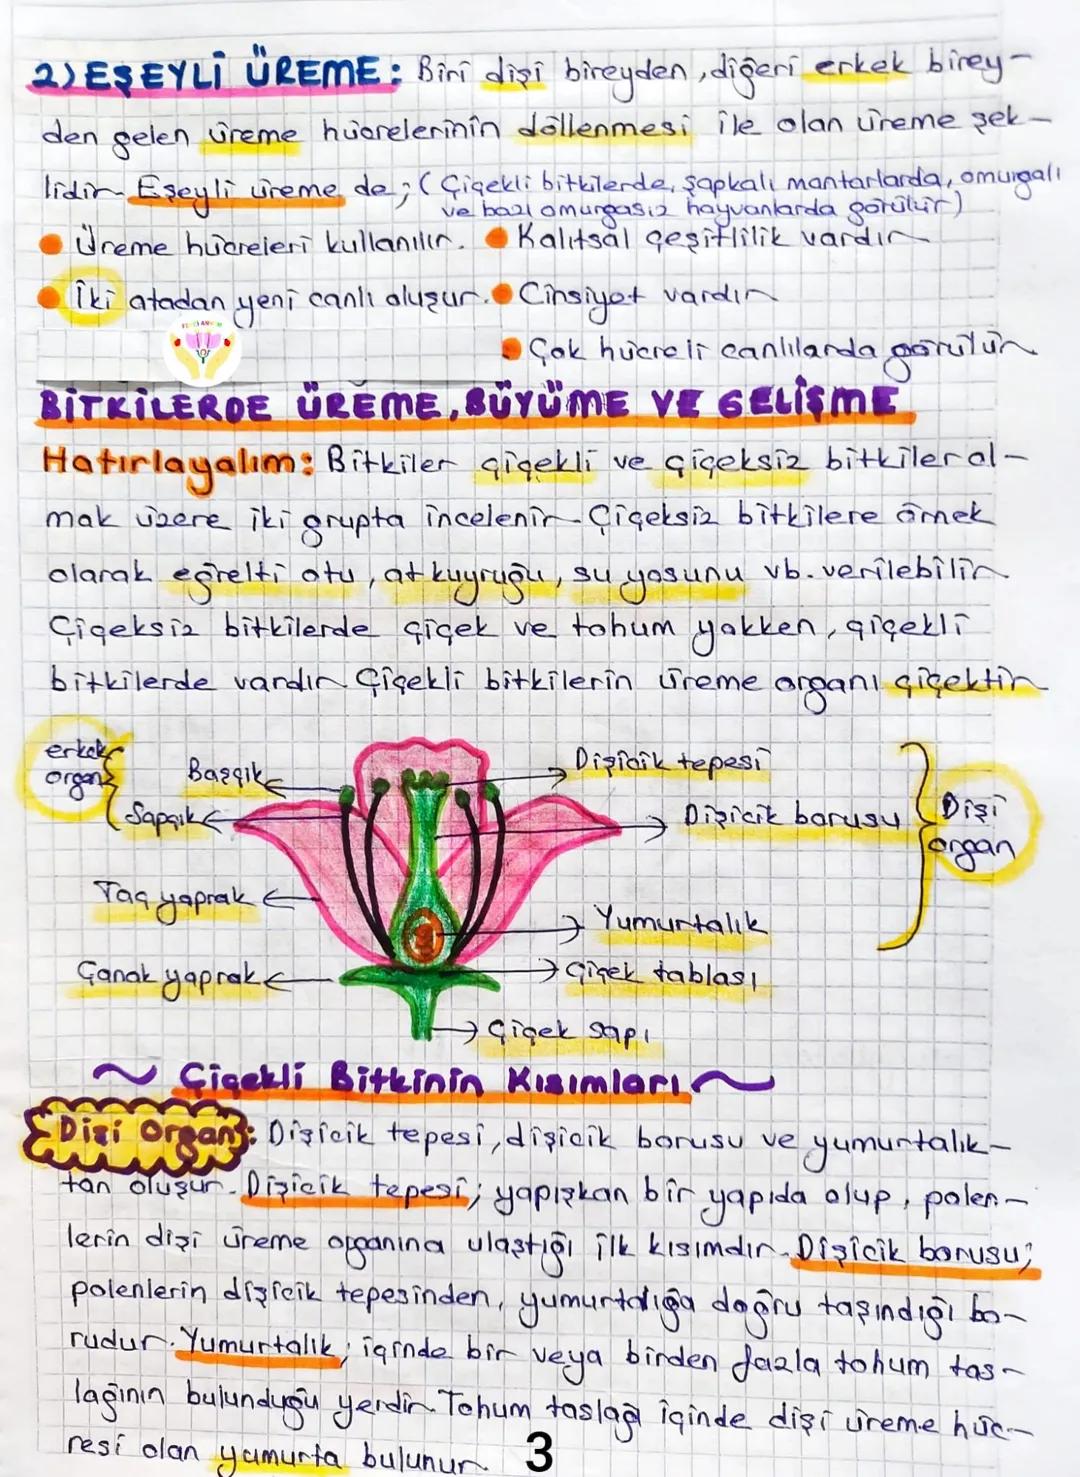 2) EŞEYLİ ÜREME: Biri dişi bireyden, diğeri erkek birey-
den gelen üreme hücrelerinin döllenmesi ile olan üreme şek-
lidir. Eşeyli üreme de; ( Çiçekli bitkilerde, şapkalı mantarlarda, omurgalı
ve bazı omurgasız hayvanlarda görülür)
Üreme hücreleri kullanılır. Kalıtsal çeşitlilik vardır
İki atadan yeni canlı oluşur. Cinsiyet vardır
Çok hücreli canlılarda görülür
BİTKİLERDE ÜREME, BÜYÜME VE GELİŞME
Hatırlayalım: Bitkiler çiçekli ve çiçeksiz bitkiler ol-
mak üzere iki grupta incelenir. Çiçeksiz bitkilere örnek
olarak eğrelti otu, at kuyruğu, su yosunu vb. verilebilir
Çiçeksiz bitkilerde çiçek ve tohum yokken, çiçekli
bitkilerde vardır Çiçekli bitkilerin üreme organı çiçektir
erkek
organ
Başçık
Sapçık
Taç yaprak
Çanak yaprak
Dişicik tepesi
Dişicik borusu
Dişi
organ
Yumurtalık
Çiçek tablası
Çiçek sapı
~ Çiçekli Bitkinin Kısımları ~
Dişi Organ: Dişicik tepesi, dişicik borusu ve yumurtalık-
tan oluşur. Dişicik tepesi; yapışkan bir yapıda olup, polen-
lerin dişi üreme organına ulaştığı ilk kısımdır. Dişicik borusu;
polenlerin dişicik tepesinden, yumurtalığa doğru taşındığı bo-
rudur. Yumurtalık; içinde bir veya birden fazla tohum tas-
lağının bulunduğu yerdir. Tohum taslağı içinde dişi üreme hüc-
resi olan yumurta bulunur.
3